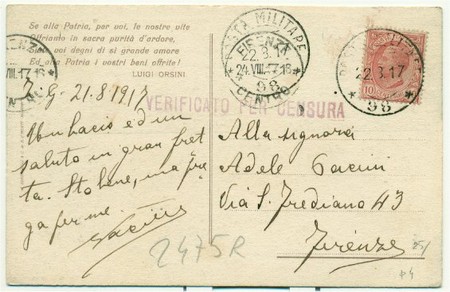 Se alla Patria, per voi, le nostre vite
Offriamo in sacra purità d'ardore,
Siate voi degni di sì grande amore
Ed alla Patria i vostri beni offrite!
LUIGI ORSINI
Z. G. 21.8.1917
Un bacio ed un
saluto in gran fret
ta. Sto bene, ma fre
ga per me.
POSTA MILITARE
22.3.17
98
FIRENZE
24.VIII.17-18
CENTRO
POSTA MILITARE
22.3.17
98
10
VERIFICATO PER CENSURA
Alla signora
Adele Pacini
Via S. Frediano 43
Firenze
2475R